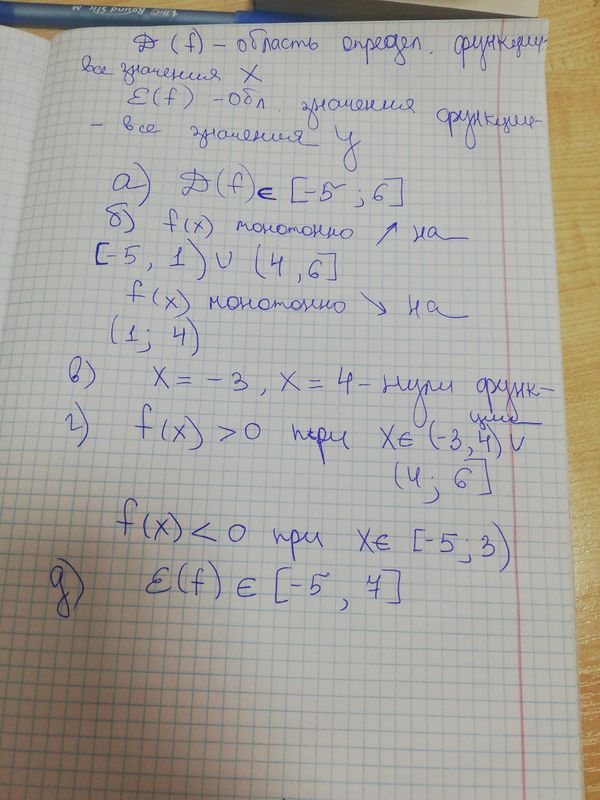 BIC Round Stic M
D(f) - область определ. функции-
все значения X
E(f) - обл. значения функции-
- все значения y
а) D(f) ∈ [-5; 6]
б) f(x) монотонно ↗ на
[-5, 1) ∪ (4, 6]
f(x) монотонно ↘ на
(1; 4)
в) X = -3, X = 4 - нули функ-
ции
г) f(x) > 0 при X ∈ (-3, 4) ∪
(4; 6]
f(x) < 0 при X ∈ [-5; 3)
д) E(f) ∈ [-5, 7]